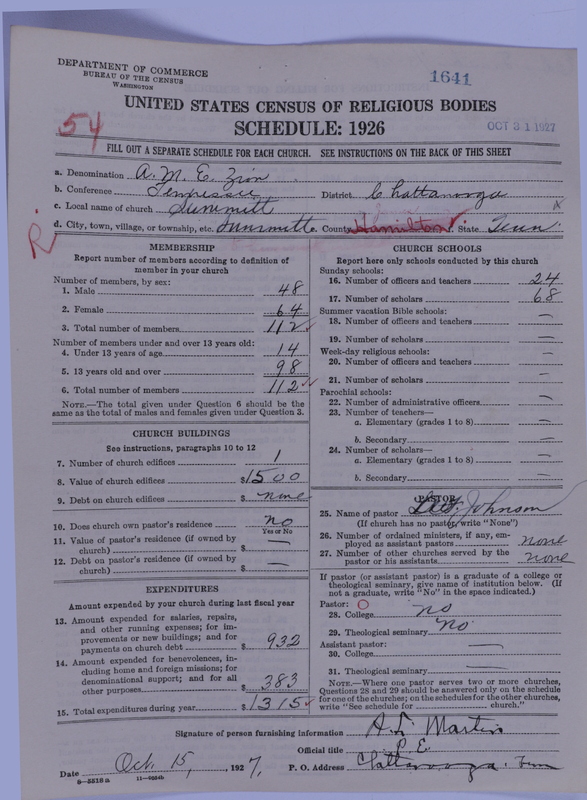 DEPARTMENT OF COMMERCE
BUREAU OF THE CENSUS
WASHINGTON
1641
UNITED STATES CENSUS OF RELIGIOUS BODIES
SCHEDULE: 1926
54
OCT 31 1927
FILL OUT A SEPARATE SCHEDULE FOR EACH CHURCH. SEE INSTRUCTIONS ON THE BACK OF THIS SHEET
a. Denomination A. M. E. Zion
b. Conference Tennessee District Chattanooga
c. Local name of church Summitt
d. City, town, village, or township, etc. Summitt County Hamilton State Tenn
R
MEMBERSHIP
Report number of members according to definition of
member in your church
Number of members, by sex:
1. Male 48
2. Female 64
3. Total number of members 112
Number of members under and over 13 years old:
4. Under 13 years of age 14
5. 13 years old and over 98
6. Total number of members 112
NOTE.—The total given under Question 6 should be the
same as the total of males and females given under Question 3.
CHURCH BUILDINGS
See instructions, paragraphs 10 to 12
7. Number of church edifices 1
8. Value of church edifices $1500
9. Debt on church edifices $ none
10. Does church own pastor's residence no
Yes or No
11. Value of pastor's residence (if owned by
church) $ —
12. Debt on pastor's residence (if owned by
church) $ —
EXPENDITURES
Amount expended by your church during last fiscal year
13. Amount expended for salaries, repairs,
and other running expenses; for im-
provements or new building; and for
payments on church debt $ 932
14. Amount expended for benevolences, in-
cluding home and foreign missions; for
denominational support; and for all
other purposes $ 383
15. Total expenditures during year $ 1315
CHURCH SCHOOLS
Report here only schools conducted by this church
Sunday schools:
16. Number of officers and teachers 24
17. Number of scholars 68
Summer vacation Bible schools:
18. Number of officers and teachers —
19. Number of scholars —
Week-day religious schools:
20. Number of officers and teachers —
21. Number of scholars —
Parochial schools:
22. Number of administrative officers —
23. Number of teachers—
a. Elementary (grades 1 to 8) —
b. Secondary —
24. Number of scholars—
a. Elementary (grades 1 to 8) —
b. Secondary —
PASTOR
25. Name of pastor Johnson
(If church has no pastor, write "None")
26. Number of ordained ministers, if any, em-
ployed as assistant pastors none
27. Number of other churches served by the
pastor or his assistants none
If pastor (or assistant pastor) is a graduate of a college or
theological seminary, give name of institution below. (If
not a graduate, write "No" in the space indicated.)
Pastor:
28. College no
29. Theological seminary no
Assistant pastor:
30. College —
31. Theological seminary —
NOTE.—Where one pastor serves two or more churches,
Questions 28 and 29 should be answered only on the schedule
for one of the churches; on the schedules for the other churches,
write "See schedule for church."
Signature of person furnishing information Martin
Official title P. E.
Date Oct. 15, 1927, P. O. Address Chattanooga. Tenn
8—5518a 11—9204b